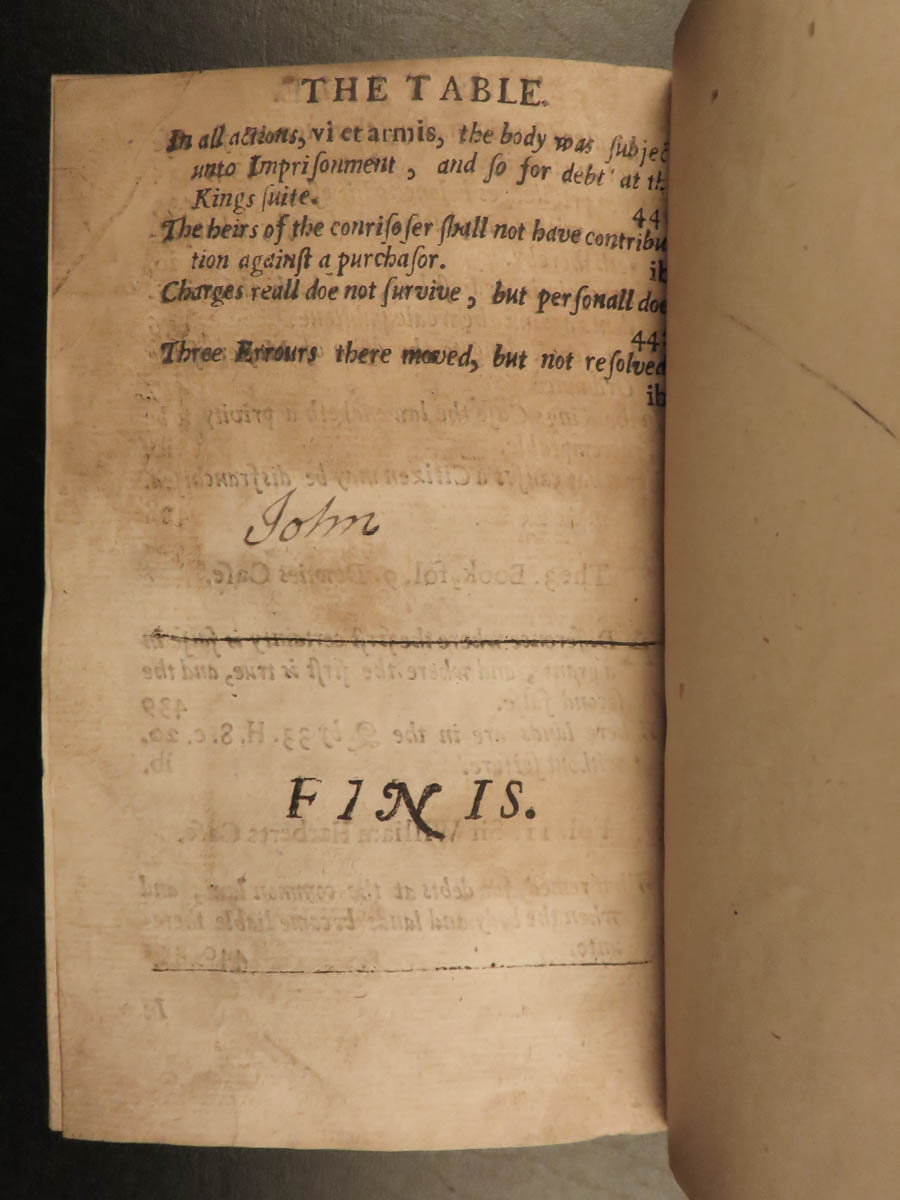 THE TABLE.
In all actions, vi et armis, the body was ſubjec
unto Impriſonment, and ſo for debt at th
Kings ſuite. 44
The heirs of the conriſoſer ſhall not have contribu
tion againſt a purchaſor. ib
Charges reall doe not ſurvive, but perſonall doe
44
Three Errours there moved, but not reſolved
ib
John
FINIS.